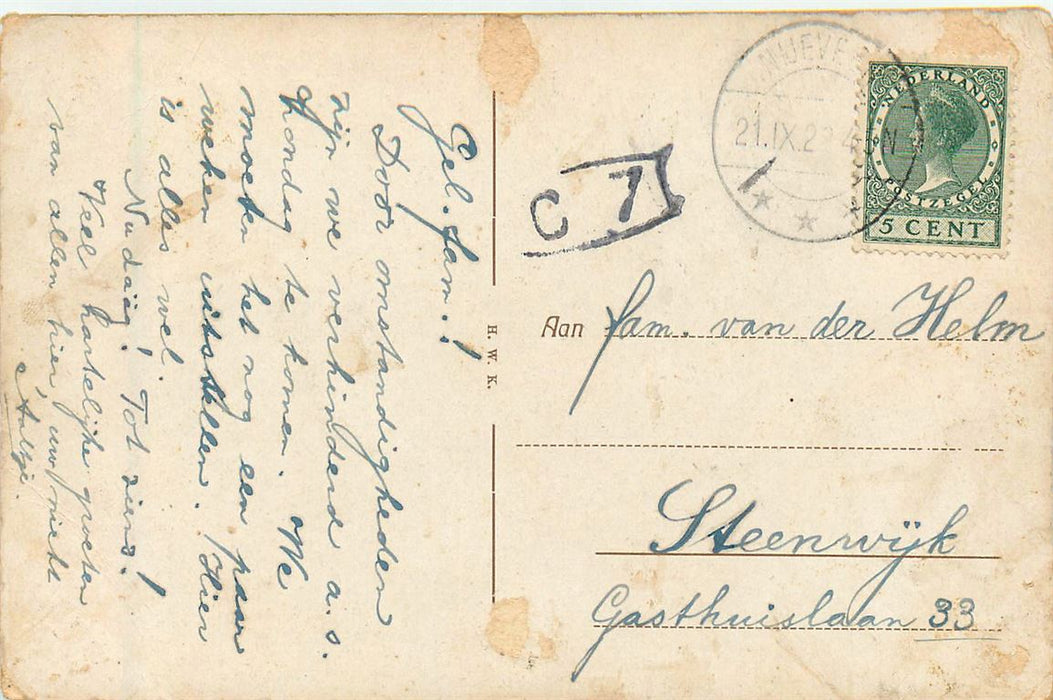 Gel. fam.!
Door omstandigheden
zijn we verhinderd a.s.
Zondag te komen. We
moeten het nog een paar
weken uitstellen. Hier
is alles wel.
Nu dáág! Tot ziens!
Veel hartelijke groeten
van allen hier, uw nicht
H. W. K.
C 7
21.IX.2
N
NEDERLAND
POSTZEGEL
5 CENT
Aan fam. van der Helm
Steenwijk
Gasthuislaan 33